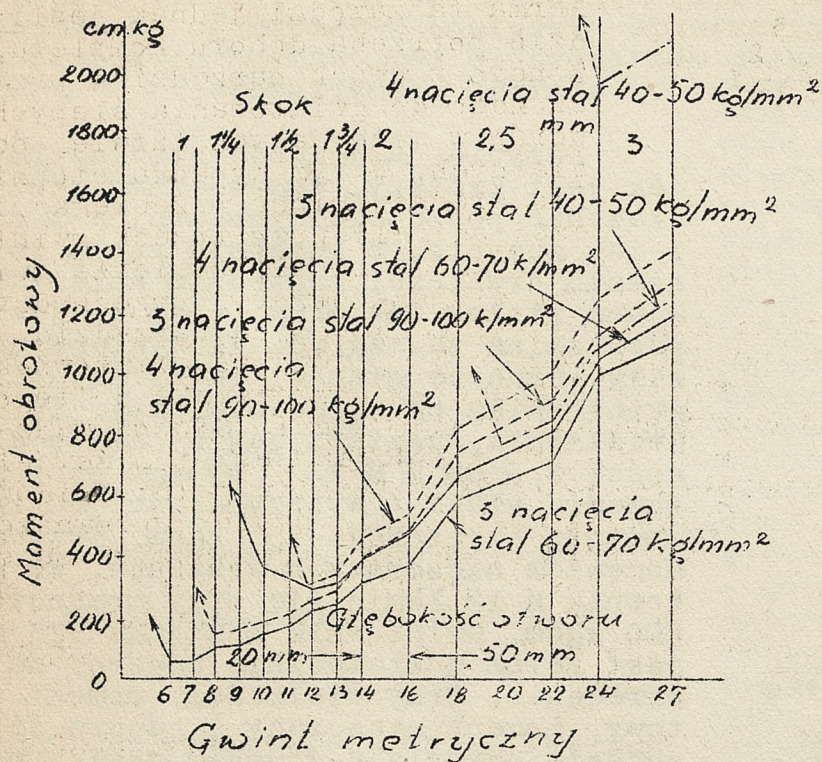 cm kg
2000
1800
1600
1400
1200
1000
800
600
400
200
0
Moment obrotowy
Skok
1 1 1/4 1 1/2 1 3/4 2 2,5 3
4 nacięcia stal 40-50 kg/mm²
mm
3 nacięcia stal 40-50 kg/mm²
4 nacięcia stal 60-70 k/mm²
3 nacięcia stal 90-100 k/mm²
4 nacięcia
stal 90-100 kg/mm²
3 nacięcia
stal 60-70 kg/mm²
Głębokość otworu
20 mm 50 mm
6 7 8 9 10 11 12 13 14 16 18 20 22 24 27
Gwint metryczny